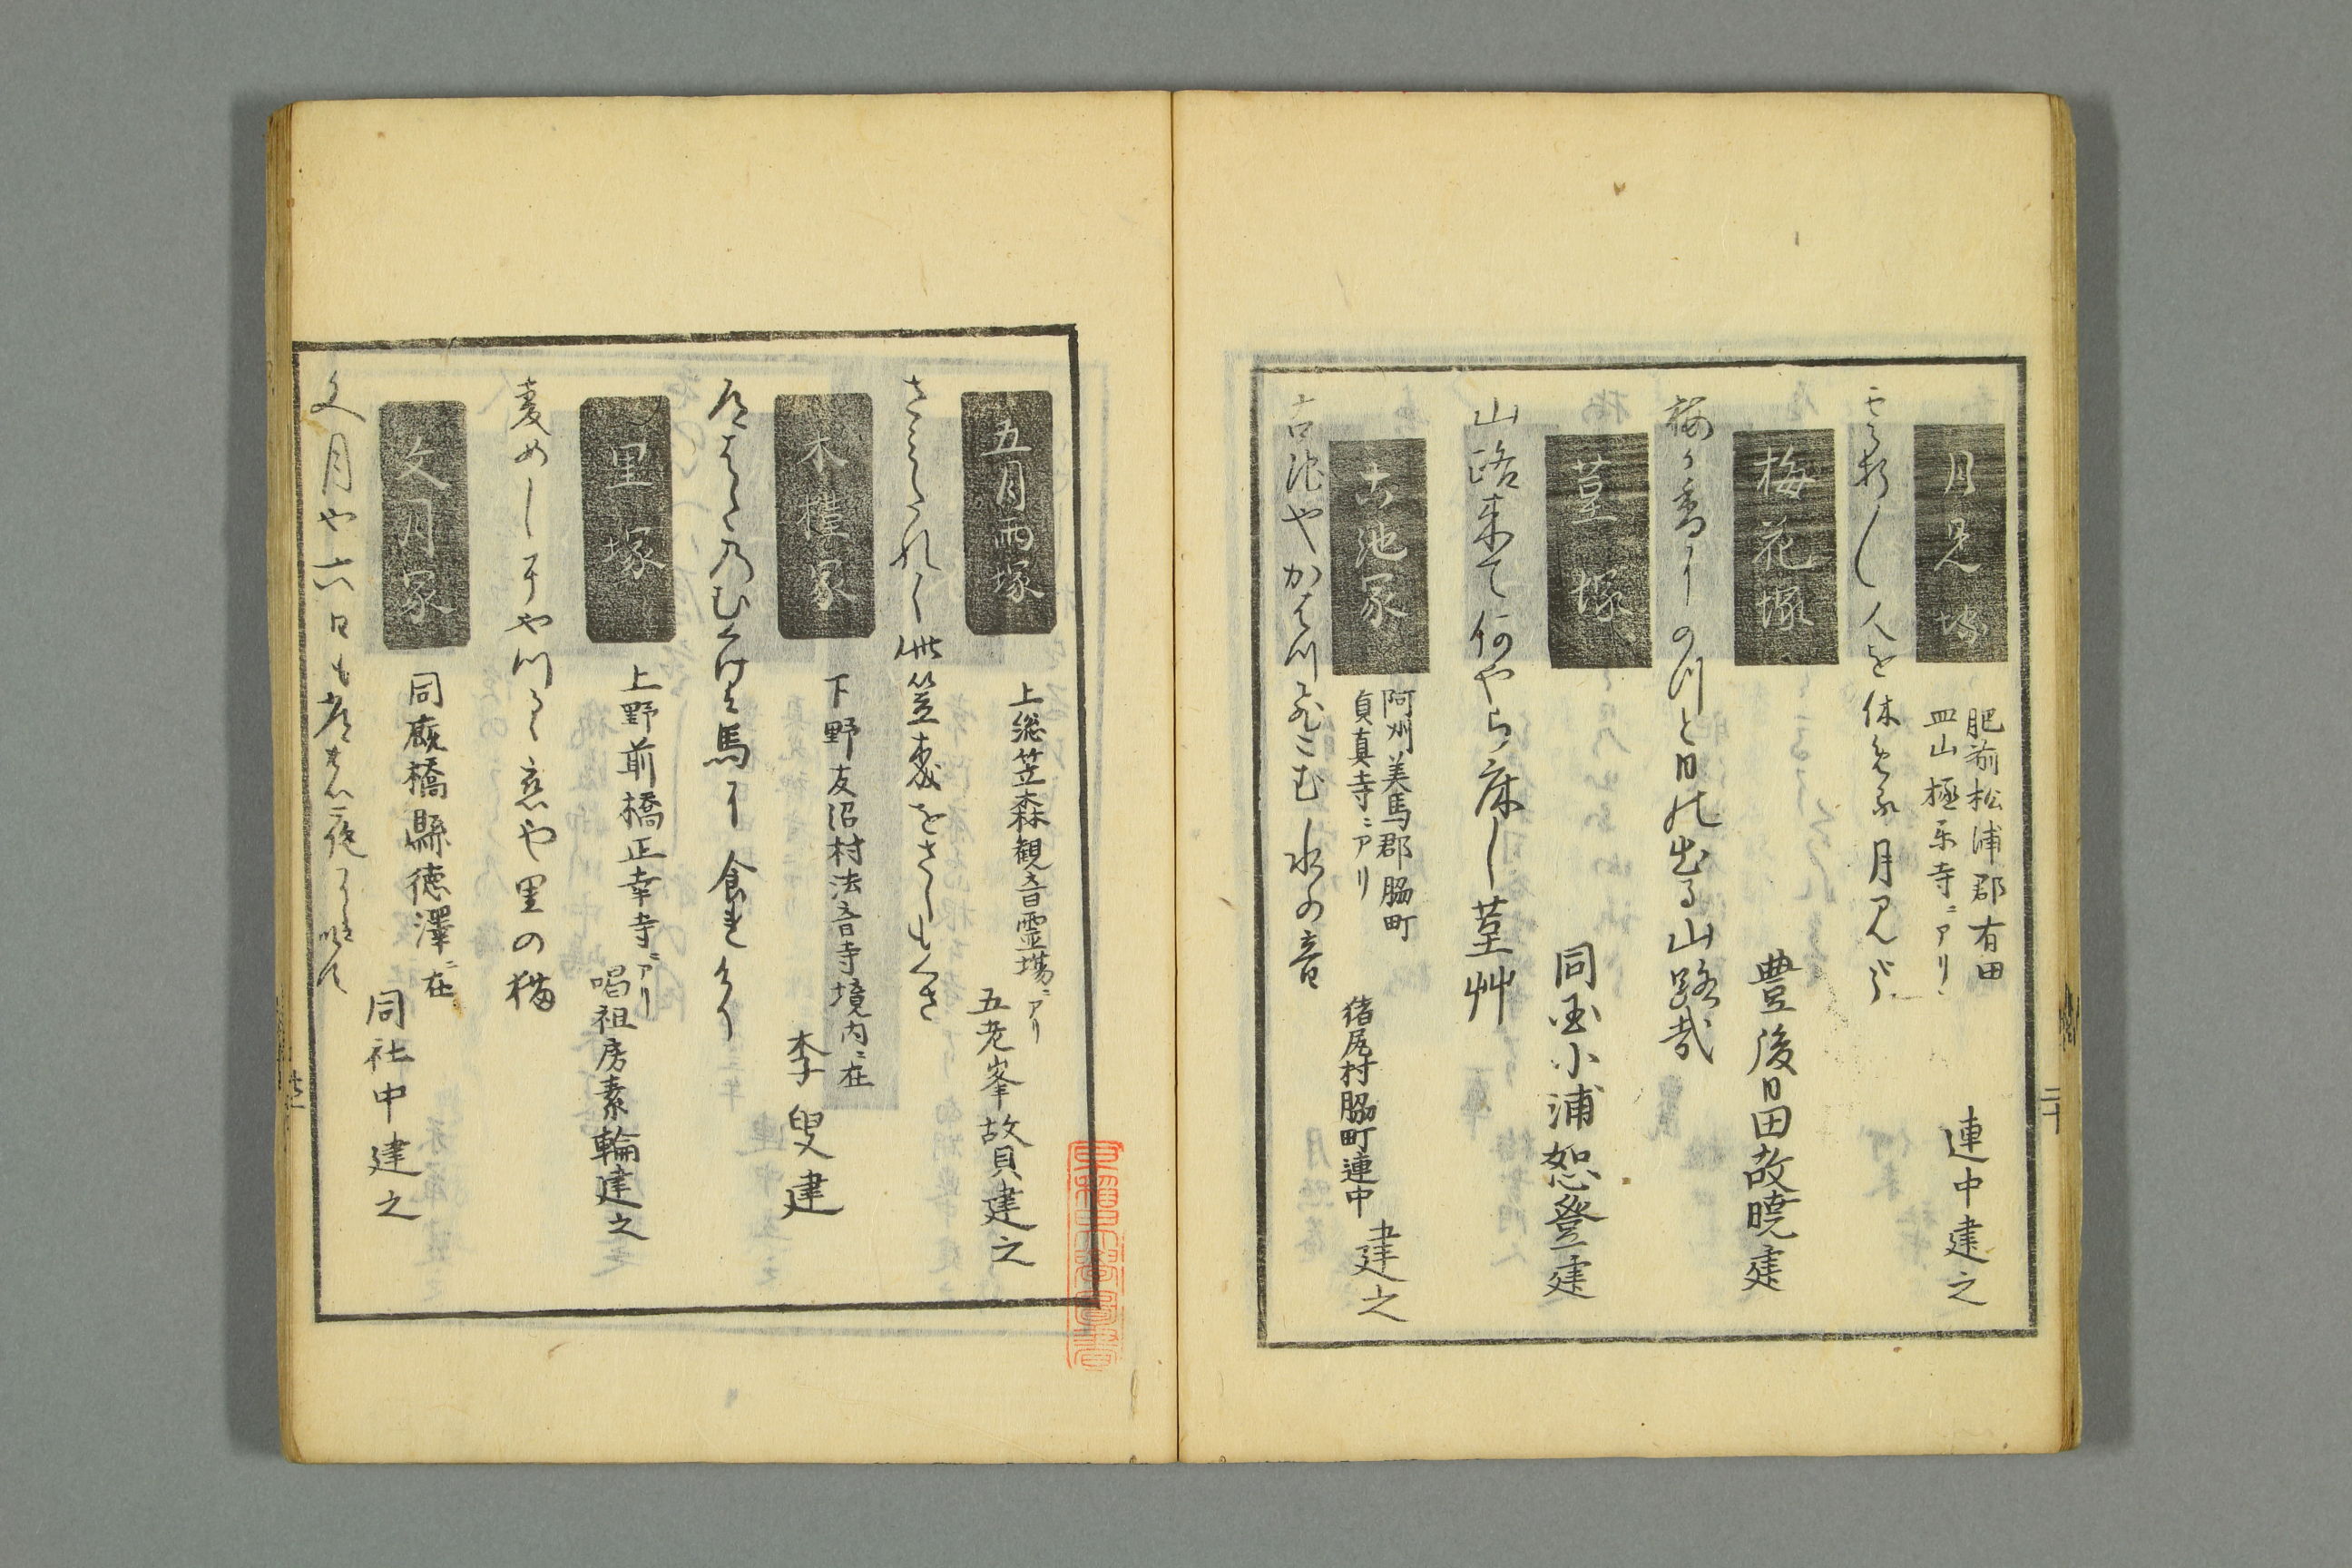 月見塚
肥前松浦郡有田
皿山極楽寺ニアリ
連中建之
雲折〳〵人を休める月見哉
梅花塚
豊後日田故暁建
梅か香にのつと日の出る山路哉
菫塚
同国小浦恕登建
山路来て何やら床し菫艸
古池冢
阿州美馬郡脇町
貞真寺ニアリ
猪尻村脇町連中
建之
古池やかはつ飛こむ水の音
二十
五月雨塚
上総笠森観音霊場ニアリ
五老峯故貝建之
さみたれに此笠森をさしもくさ
木槿冢
下野友沼村法音寺境内ニ在
李叟建
道はたのむくけは馬に食れけり
里塚
上野前橋正幸寺ニアリ
唱祖房素輪建之
麦めしにやつるゝ恋や里の猫
文月冢
同厩橋縣徳澤ニ在
同社中建之
文月や六日も常の夜には似す